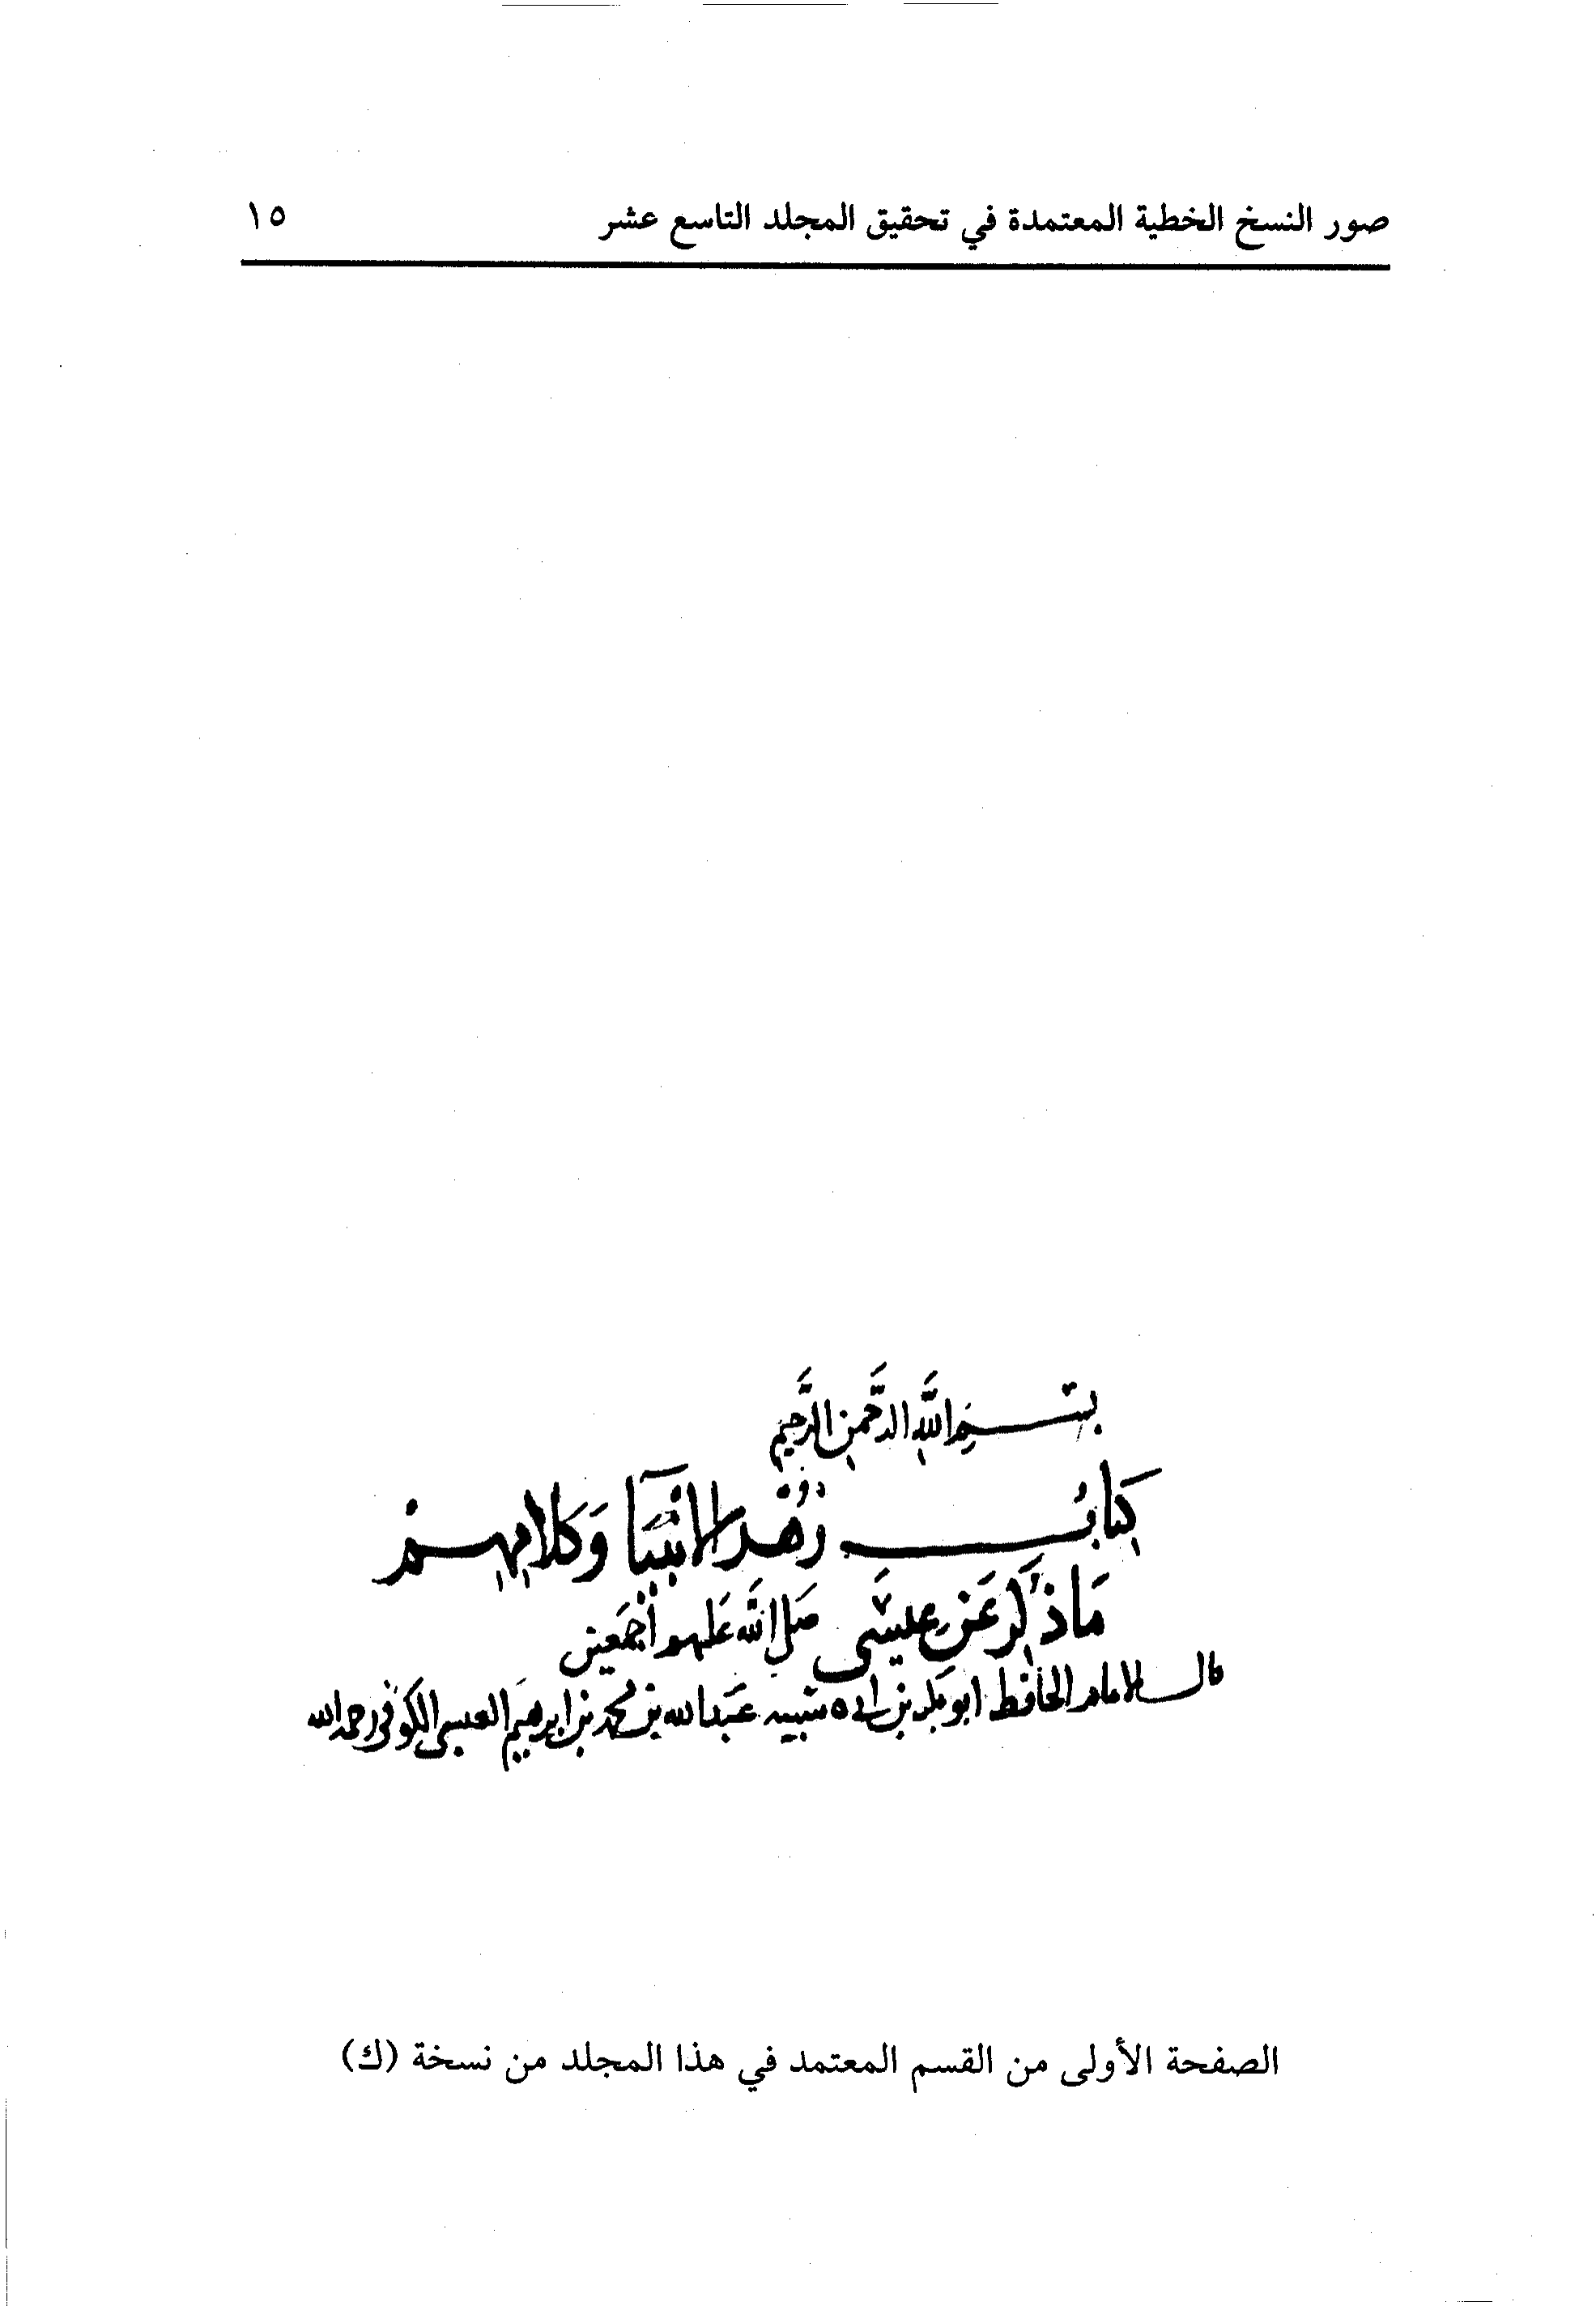 صور النسخ الخطية المعتمدة في تحقيق المجلد التاسع عشر ١٥
بسم اللَّه الرَّحمن الرَّحيم
كتابُ زُهْد الانبيآ وَكلامِهِمْ
مَاذُكِرَ عَنْ عيسَى صَلى اللَّه عَليهم أجْمَعين
قال الامام الحافظ ابو بكر بن ابى شيبه عَبْد الله بن محمد بن ابرهيم العبسى الكوفى رحمه الله
الصفحة الأولى من القسم المعتمد في هذا المجلد من نسخة (ك)